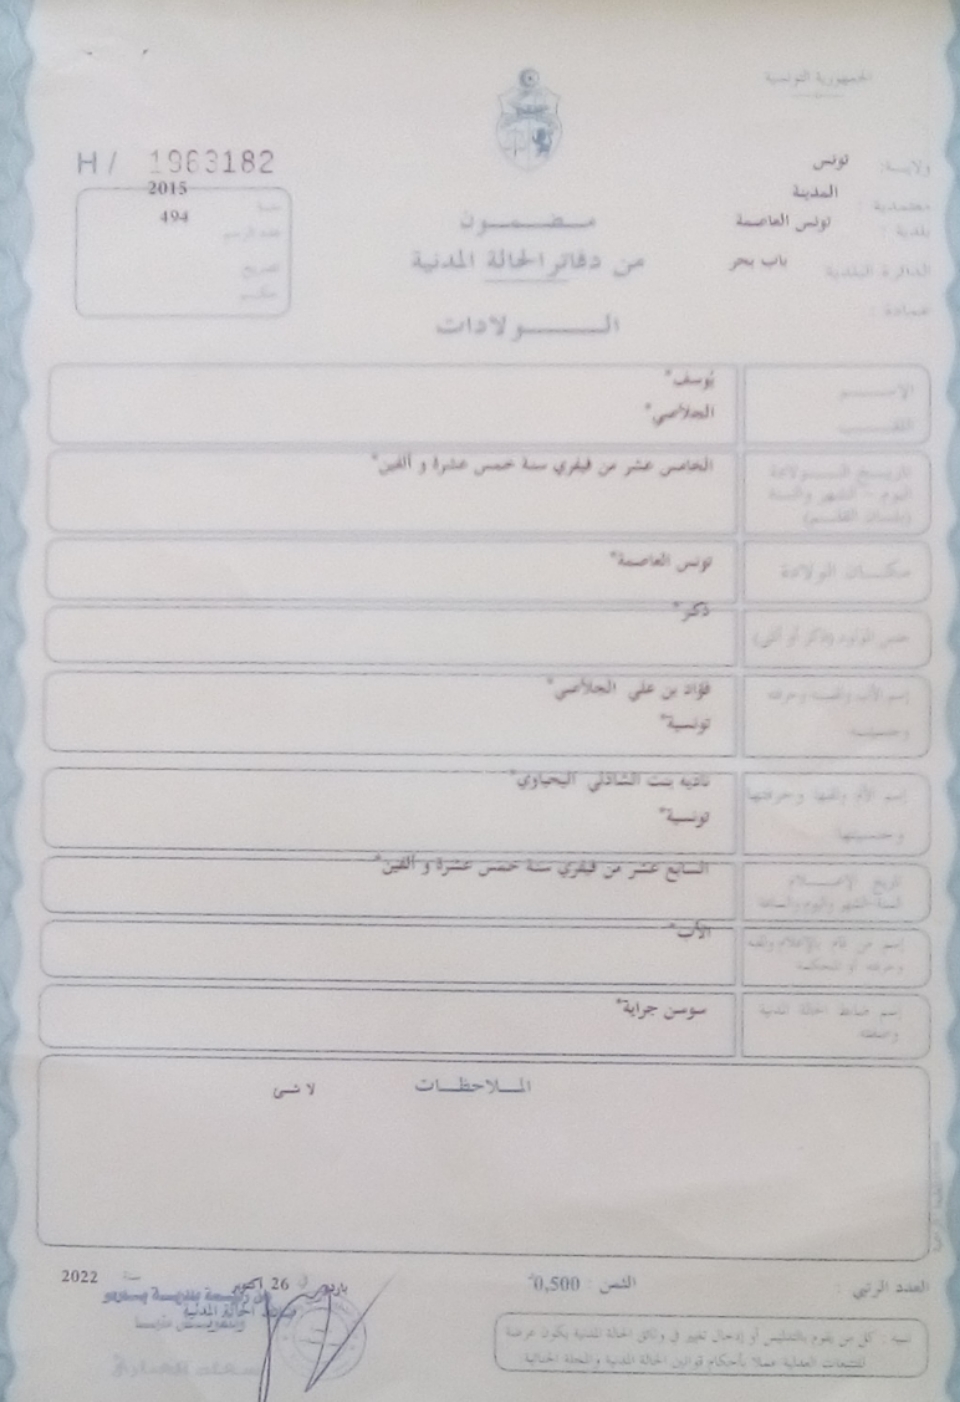 الجمهورية التونسية
ولاية: تونس
معتمدية : المدينة
بلدية : تونس العاصمة
الدائرة البلدية باب بحر
عمادة :
H / 1963182
سنة 2015
عدد الرسم 494
تصريح
حكم
مضمون
من دفاتر الحالة المدنية
الولادات
الإسم يوسف*
اللقب الجلاصي*
تاريخ الولادة الخامس عشر من فيفري سنة خمس عشرة و ألفين*
اليوم - الشهر والسنة
(بلسان القلم)
مكان الولادة تونس العاصمة*
جنس المولود (ذكر أو أنثى) ذكر*
إسم الأب ولقبه وحرفته فؤاد بن علي الجلاصي*
وجنسيته تونسية*
إسم الأم ولقبها وحرفتها ناديه بنت الشاذلي اليحياوي*
وجنسيتها تونسية*
تاريخ الإعلام السابع عشر من فيفري سنة خمس عشرة و ألفين*
السنة الشهر واليوم والساعة
إسم من قام بالإعلام ولقبه الأب*
وحرفته أو المحكمة
إسم ضابط الحالة المدنية سوسن جراية*
وإمضاؤه
الملاحظات لا شئ
العدد الرتبي :
الثمن : 0,500
باردو في 26 أكتوبر سنة 2022
ضابط الحالة المدنية
تنبيه : كل من يقوم بالتدليس أو إدخال تغيير في وثائق الحالة المدنية يكون عرضة
للتتبعات العدلية عملا بأحكام قوانين الحالة المدنية والمجلة الجنائية